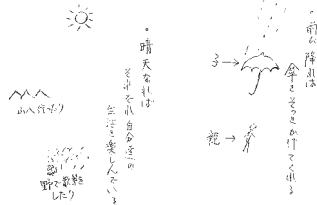 ・雨が降れば
傘をそっとかけてくれる
子→
親→
・晴天なれば
それぞれ自分達の
生活を楽しんでいる
山へ行ったり
野で
したり